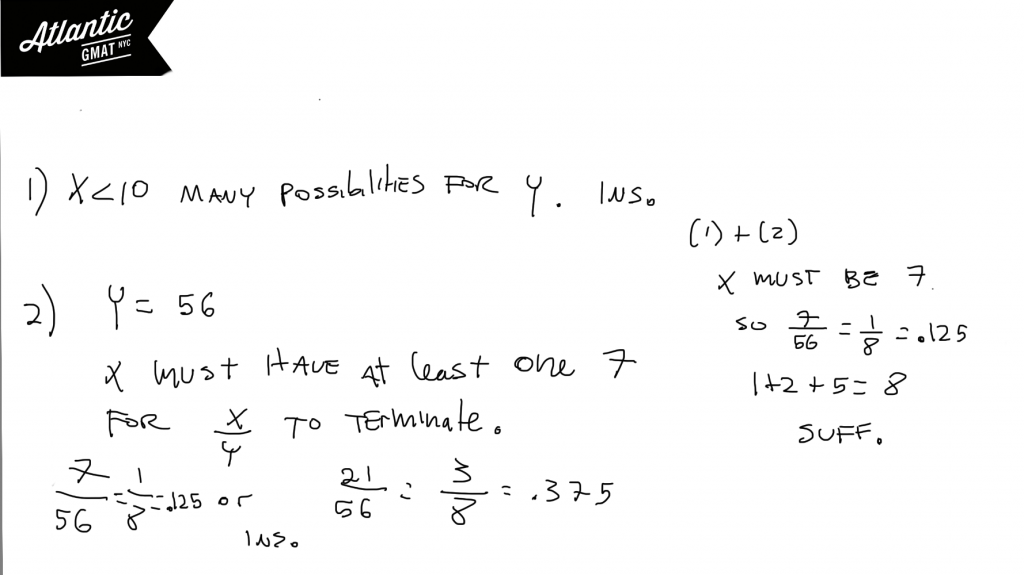 Atlantic
GMAT NYC
1) X<10 MANY POSSIBILITIES FOR Y. INS.
2) Y = 56
X MUST HAVE AT least one 7
FOR X/Y TO TERMINATE.
7/56 = 1/8 = .125 or 21/56 = 3/8 = .375
INS.
(1) + (2)
X MUST BE 7.
SO 7/56 = 1/8 = .125
1+2+5 = 8
SUFF.